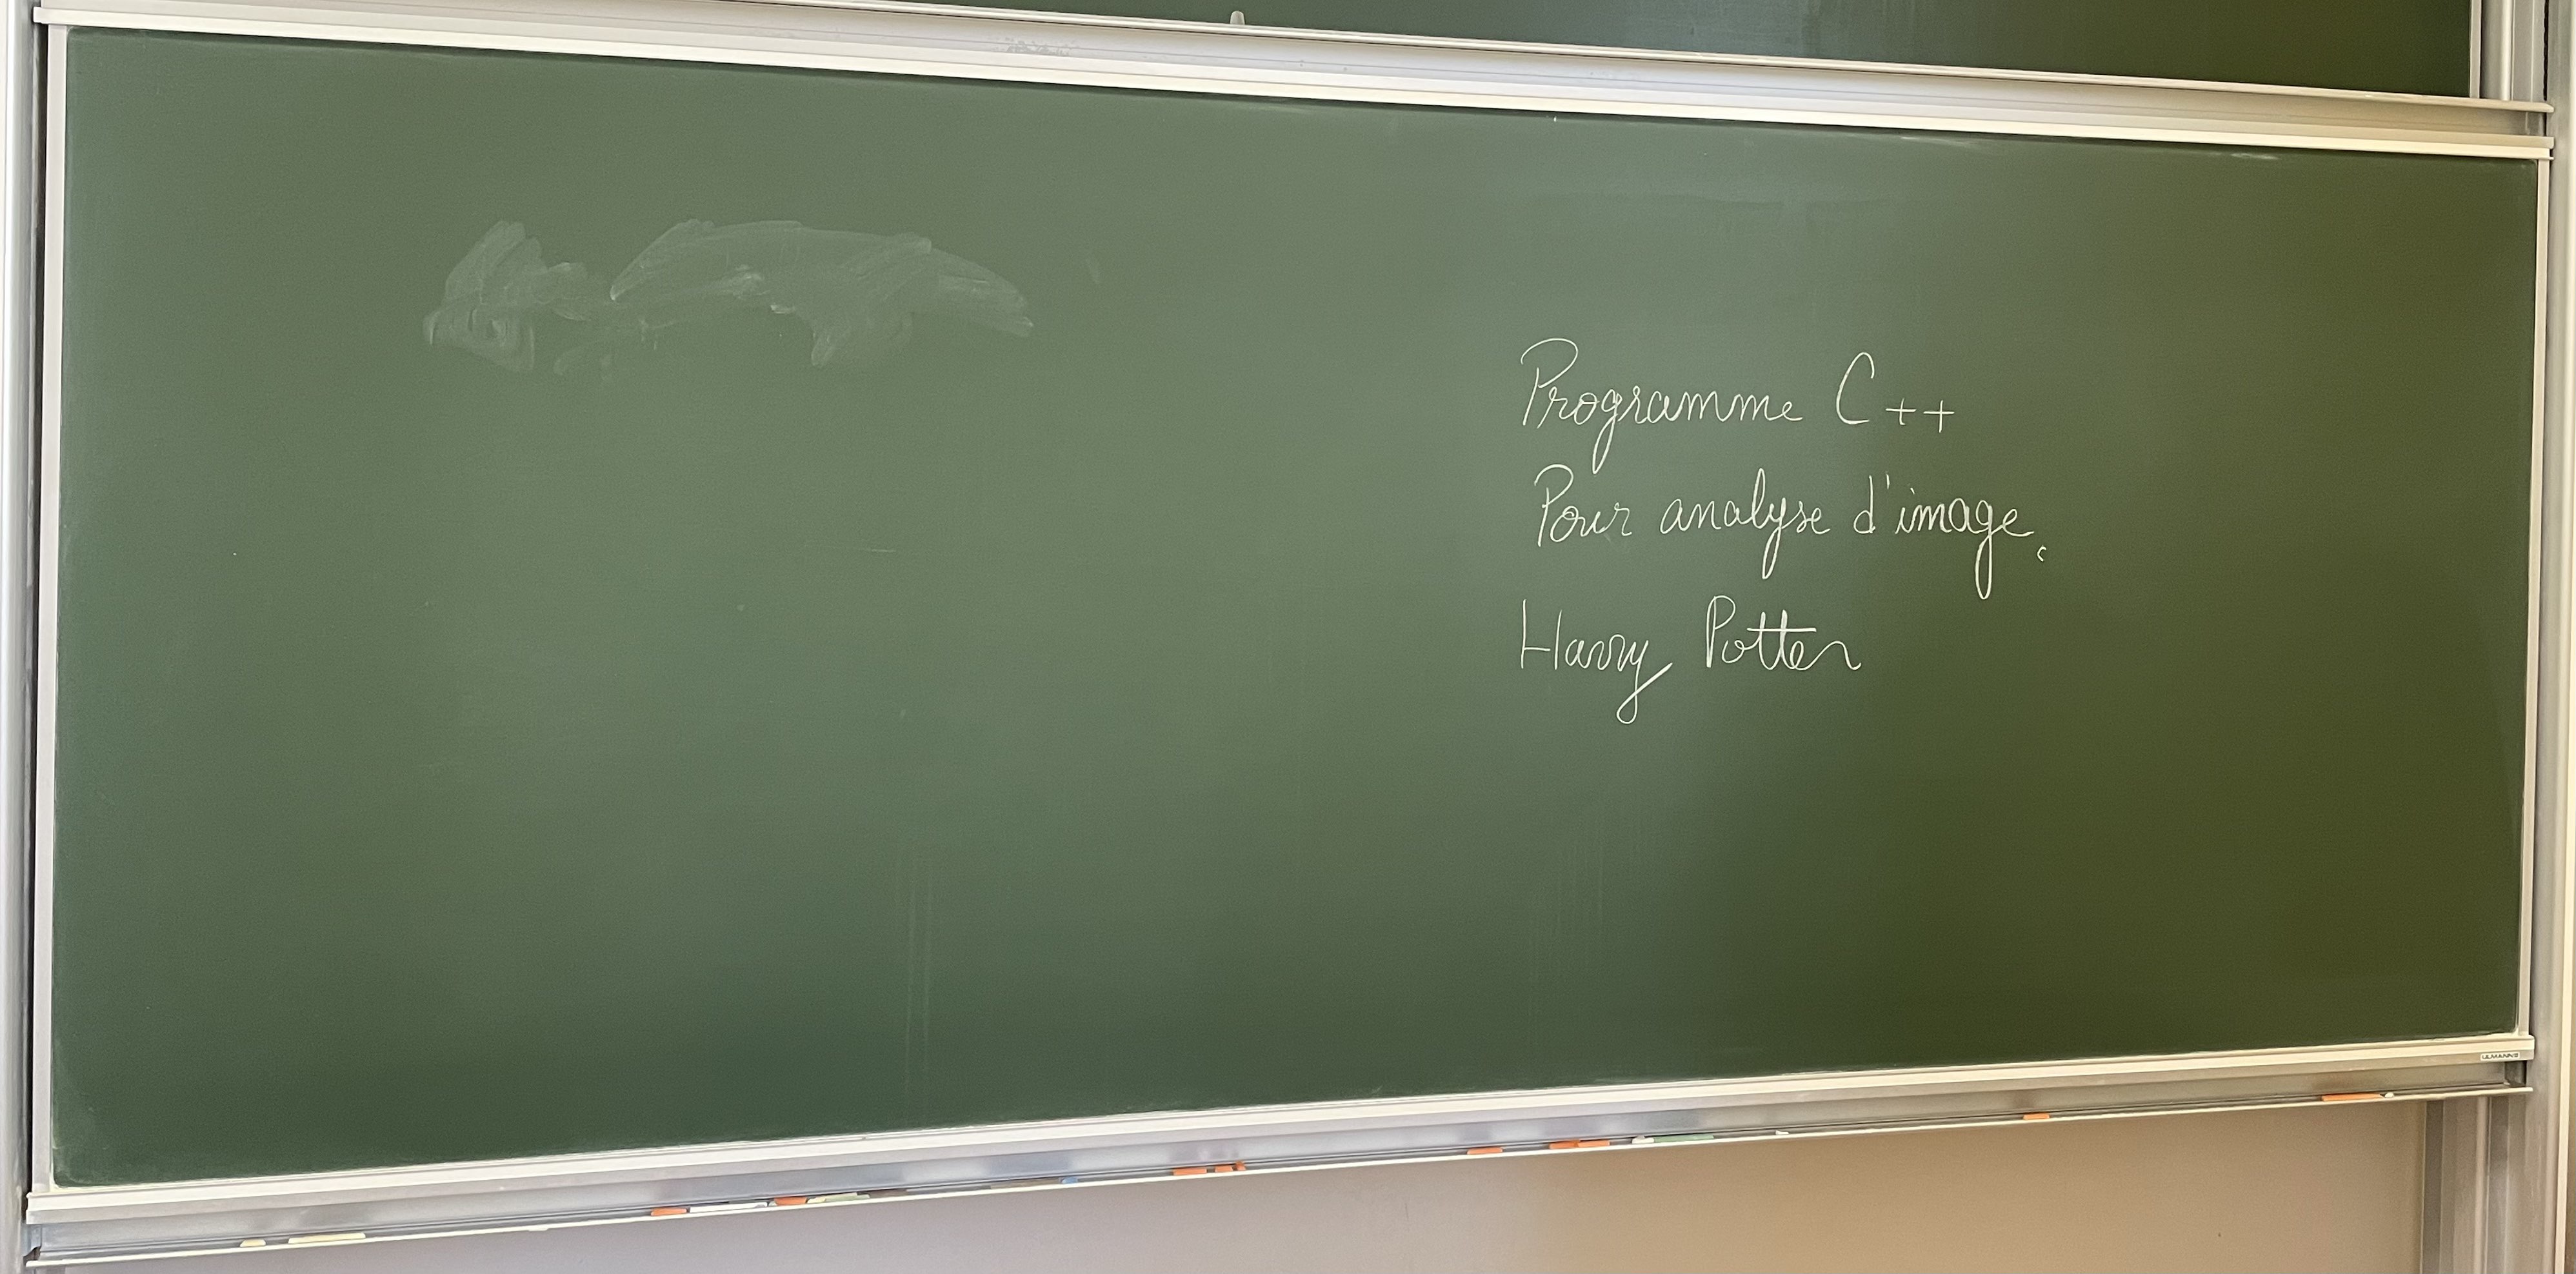 Programme C++
Pour analyse d'image.
Harry Potter
ULMANN